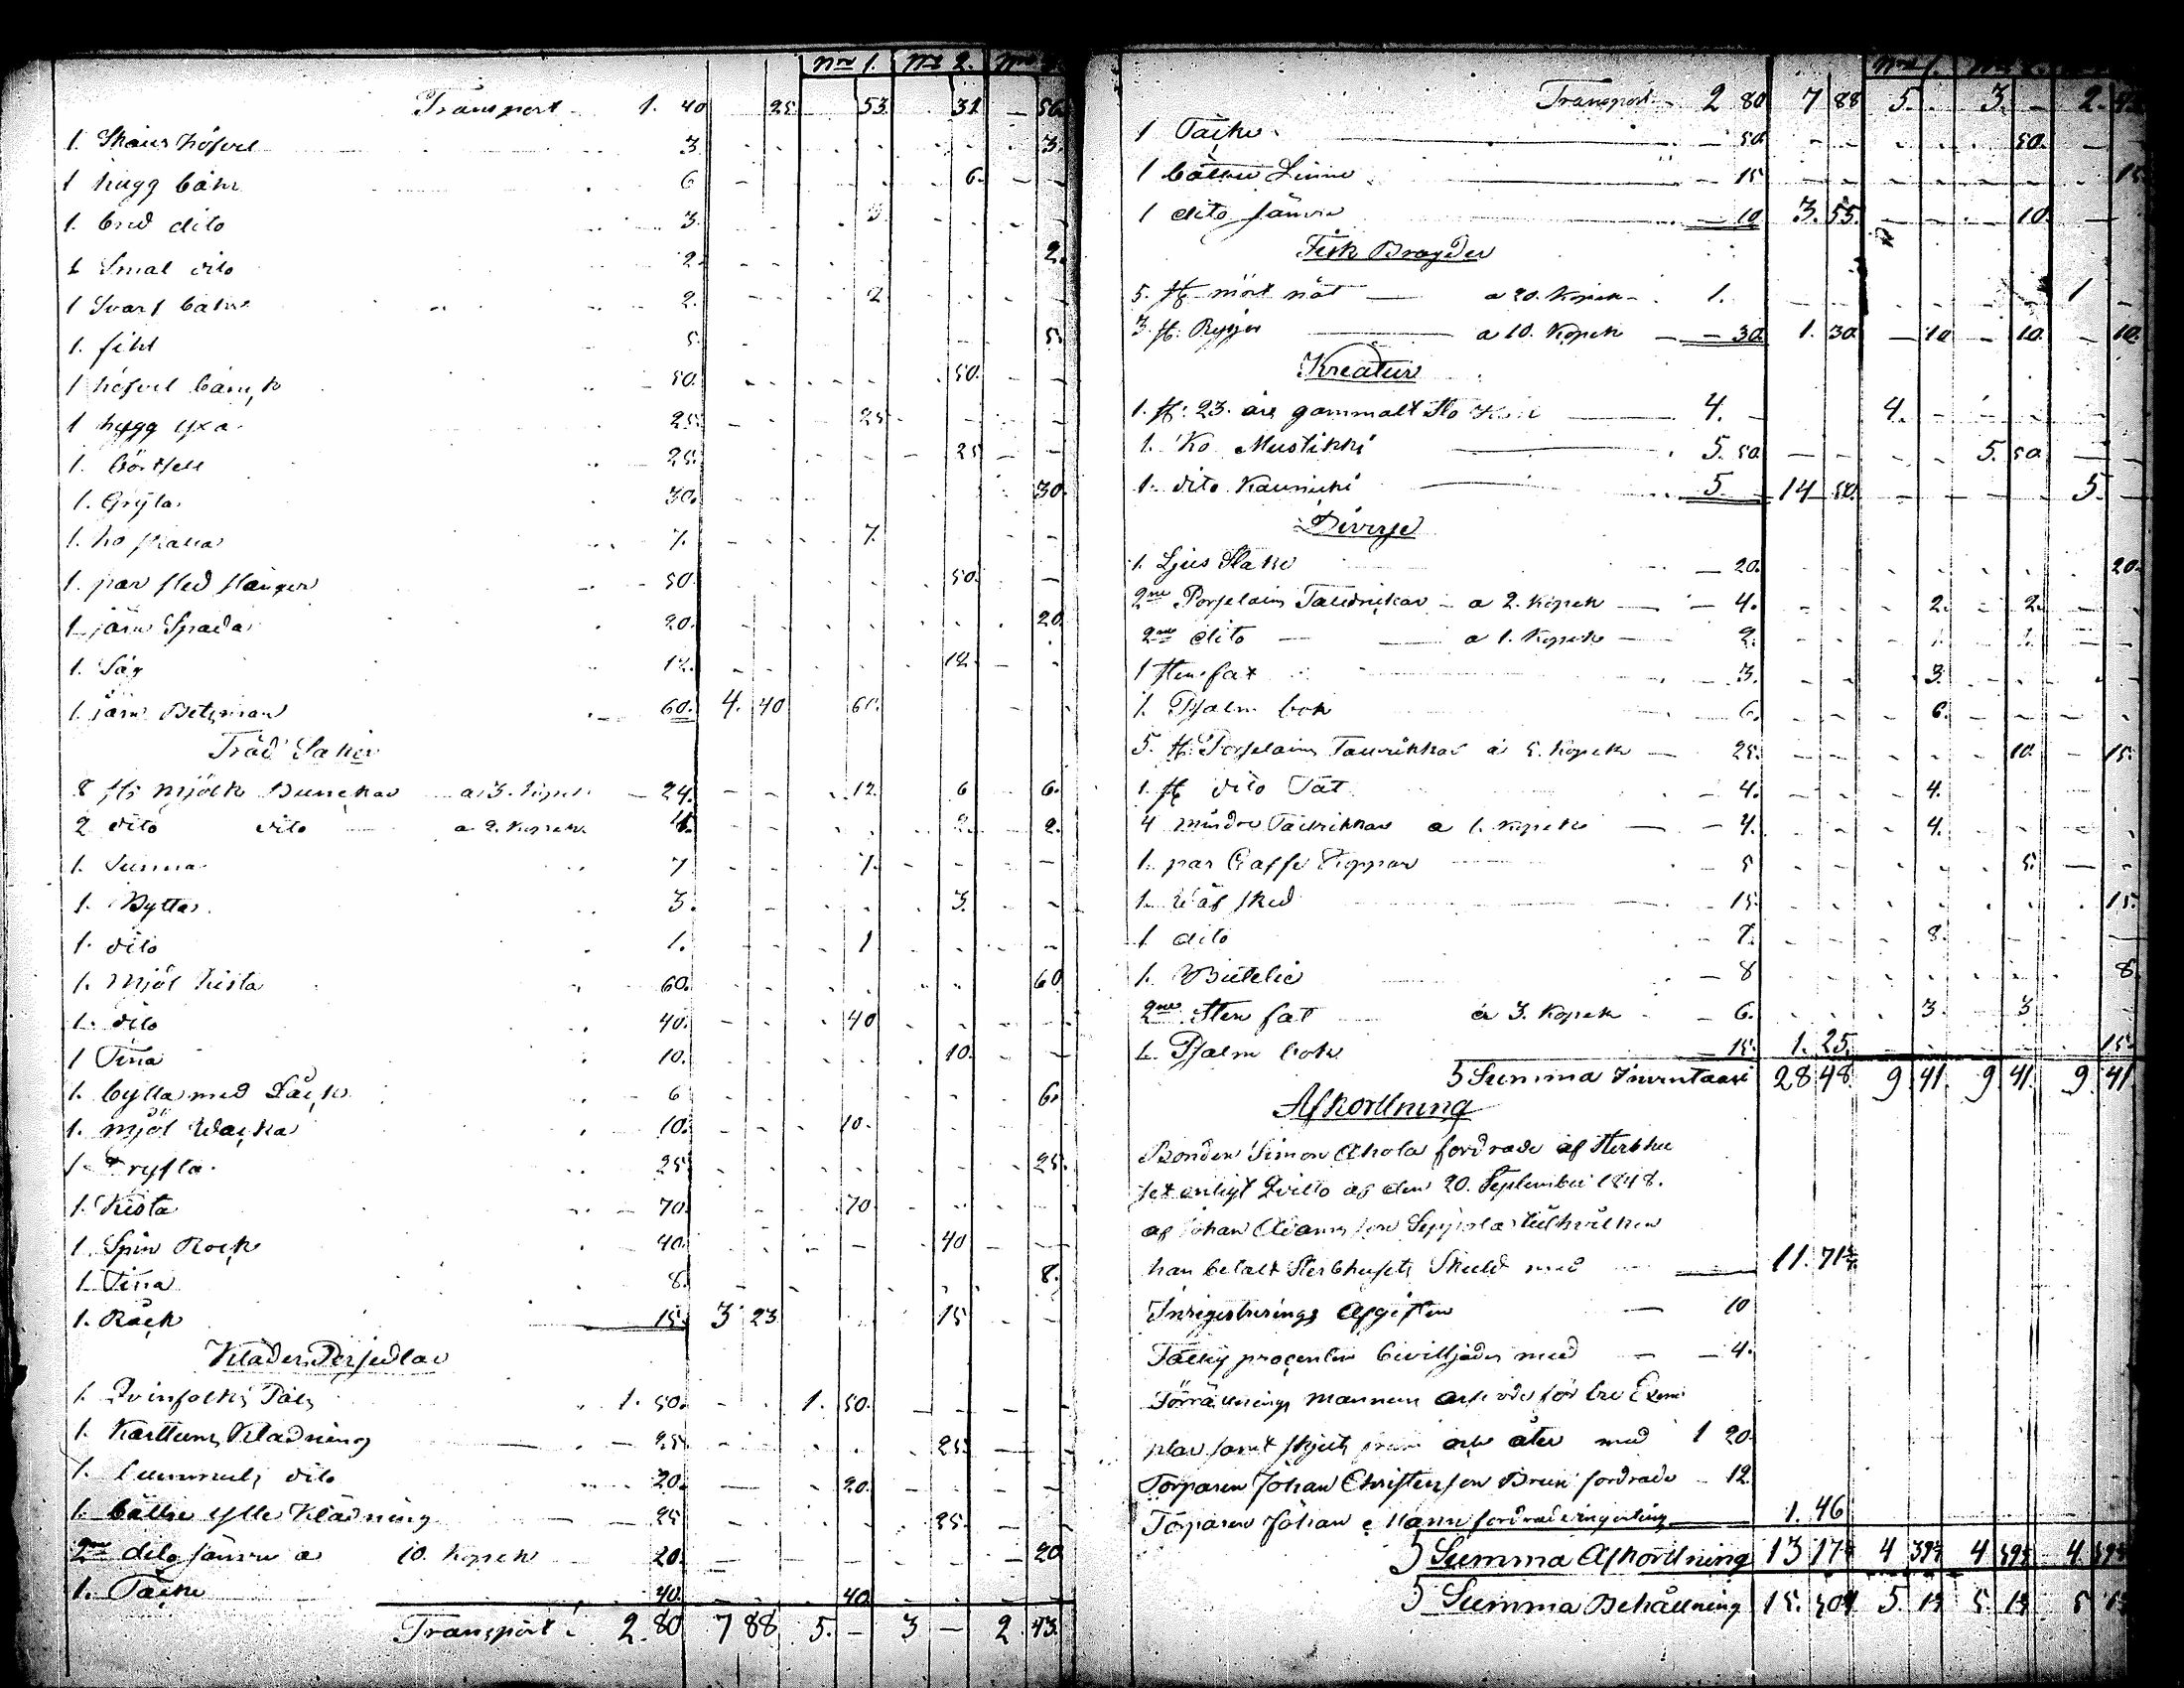 Nro 1. Nro 2. Nro
Transport 1. 40 25 53 31 — 56
1. Skaus höfvel 3 3.
1 hugg båhr 6 6.
1. bred dito 3. 3
1 Smal dito 2. 2.
1 Svarf båhr 2. 2
1. fihl 5. 5.
1 höfvel bänck 50. 50.
1 hygg yxa 25. 25
1. 25. 25
1. Gryta 30. 30.
1. ho 7. 7.
1. par sled stänger 50. 50.
1 järn Spada 20. 20
1. Såg 12. 12.
1. järn Betzman 60. 4. 40 60.
Träd Saker
8 st: Mjölk Bunckar a 3. Kopek 24. 12. 6 6.
2 dito dito a 2. Kopek 4. 2. 2.
1. 7 7.
1. Bytta 3. 3.
1. dito 1. 1
1. Mjöl Kista 60. 60
1. dito 40. 40
1 Tina 10. 10.
1. bytta med Låck 6 6.
1. mjöl Wacka 10. 10.
1. Tryfta 25 25.
1. Kista 70. 70
1 Spin Rock 40. 40
1. Tina 8. 8.
1. Råck 15. 3 23 15
Kläder Persedlar
1. Qvinfolks Päls 1. 50. 1. 50.
1. Karttuns Kladning 25 25
1. dito 20. 20.
1. bättre ylle Klädning 25 25.
2ne dito sämre a 10. kopek 20. 20
1. Täcke 40. 40
Transport 2. 80 7 88 5. — 3 — 2 43.
Transport 2 80 7 88 5. 3. — 2. 43
1 Täcke — 50. 50.
1 bättre — 15 15
1 dito sämre — 10 3. 55. 10.
Fisk Bragder
5. st mört nät — a 20. Kopek 1. 1
3 st: Rysjor a 10. Kopek — 30. 1. 30. — 10 — 10. — 10.
Kreatur
1. st: 23. års gammalt Sto 4. — 4.
1. Ko Mustikki 5. 50 5. 50
1. dito 5. 14 50. 5.
Diverse
1. Ljus Stake — 20. 20.
2ne Porselains Taldrickar a 2. Kopek — 4. 2. 2.
2ne dito a 1. Kopek 2. 1. 1.
1 sten fat — 3. 3.
1. Psalm bok — 6. 6.
5. st: Porselains Taldrikkar á 5. Kopek — 25. 10. 15.
1. st dito Fat — 4. 4.
4 mindre Taldrikkar a 1. Kopek — 4. 4.
1. par Caffe Koppar — 5 5.
1. Wäf sked — 15 15.
1 dito 8.
1. Butelie — 8 8.
2ne Sten fat á 3. Kopek — 6. 3. 3.
1. Psalm bok — 15. 1. 25. 15.
Summa Inventarii 28 48 9 41. 9 41. 9 41
Afkortning
Bonden Simon Ahola fordrade af Sterbhu
set enligt Qvitto af den 20. September 1848.
af Johan Adamsson Seppola
han betalt Sterbhusets Skuld med 11. 71
Inregistrerings Afgiften — 10
Fattig procenten bevilljades med — 4.
Förrättnings mannens arfvode för tre Exem
plar samt skjuts åter med 1 20.
Torparen Johan Christersson fordrade — 12
Torparen Johan fordrade ingenting 1. 46
Summa Afkortning 13 17 4 39 4 39 4 39
Summa Behållning 15. 30 5. 1 5. 1 5 1